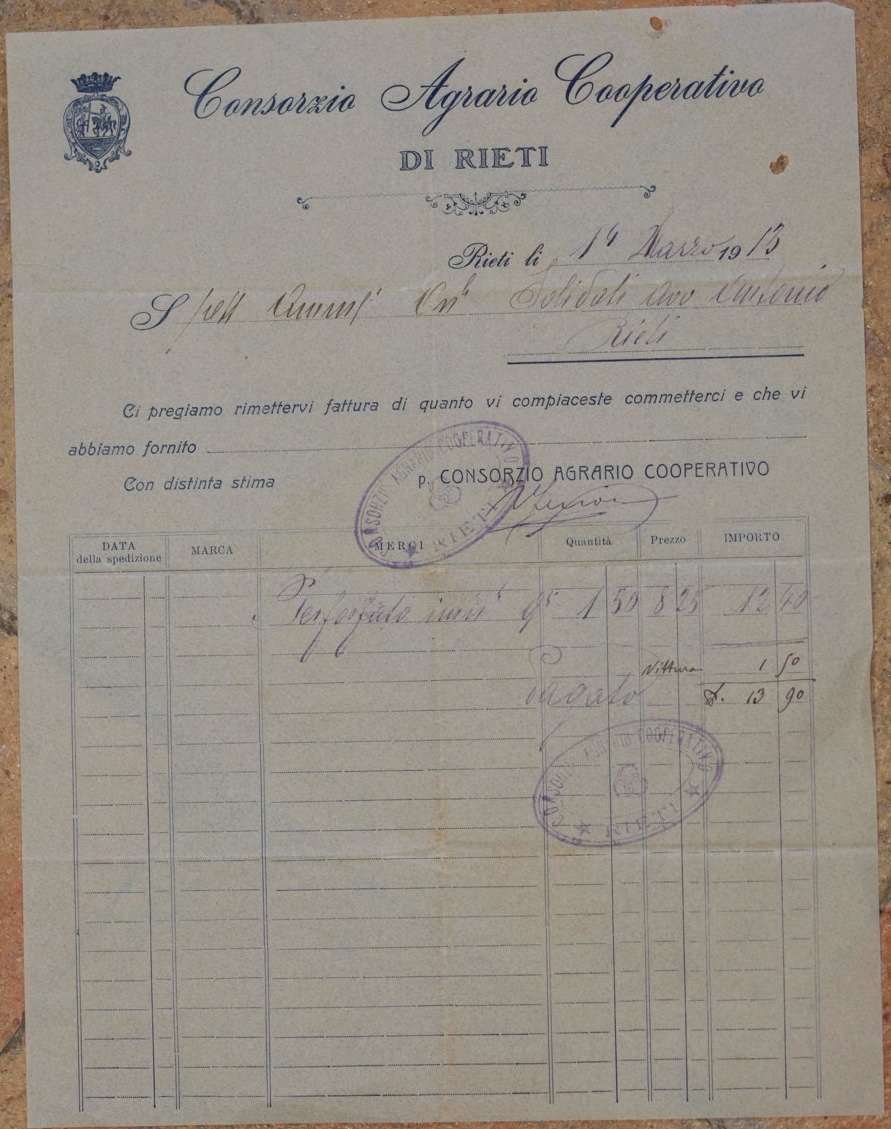 Consorzio Agrario Cooperativo
DI RIETI
Rieti li 14 Marzo 1913
Spett Amm Solidati avv Antonio
Rieti
Ci pregiamo rimettervi fattura di quanto vi compiaceste commetterci e che vi
abbiamo fornito
Con distinta stima
p. CONSORZIO AGRARIO COOPERATIVO
CONSORZIO AGRARIO COOPERATIVO
RIETI
DATA della spedizione MARCA MERCI Quantità Prezzo IMPORTO
Perfosfato 1 50 8 25 12 40
Vettura 1 50
Pagato £. 13 90
CONSORZIO AGRARIO COOPERATIVO
RIETI